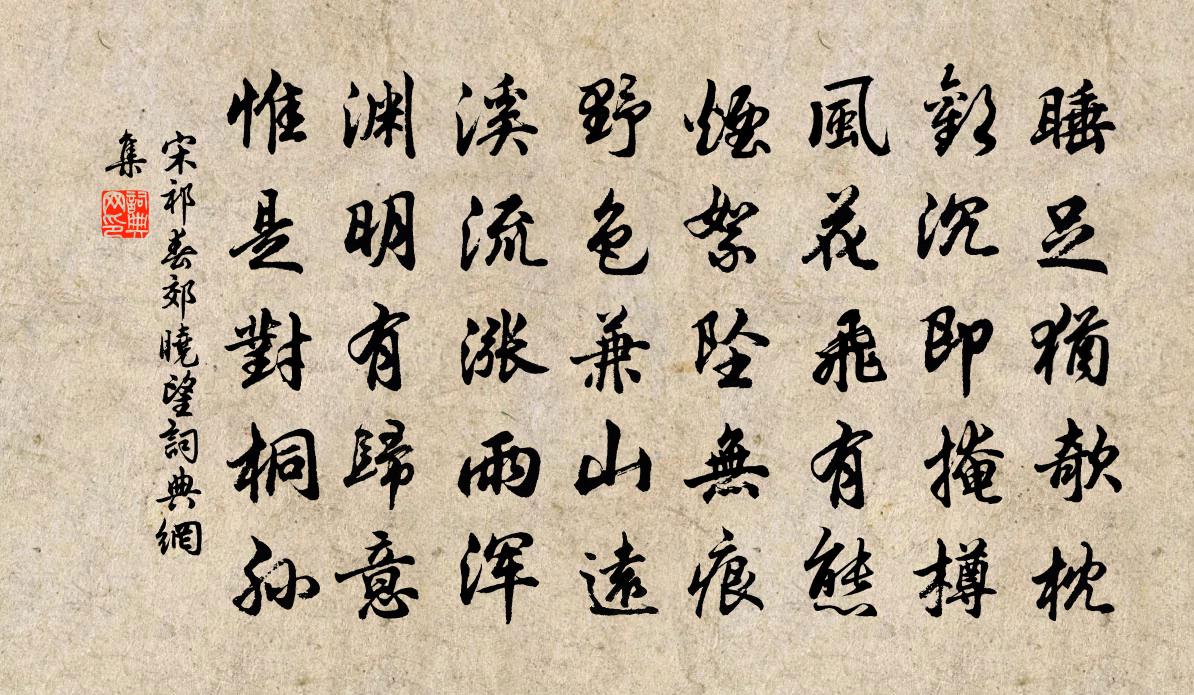 睡足猶欹枕
歡沉即掩樽
風花飛有態
煙絮墜無痕
野色兼山遠
溪流漲雨渾
淵明有歸意
惟是對桐孫
宋祁春郊曉望詞典網
集
詞典
网印